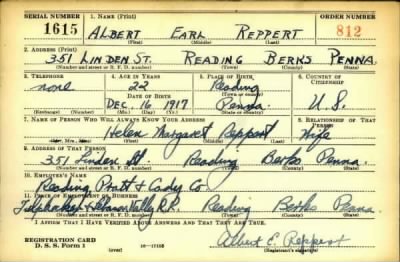 SERIAL NUMBER 1. NAME (Print) ORDER NUMBER
1615 ALBERT EARL REPPERT 812
(First) (Middle) (Last)
2. ADDRESS (Print)
351 LINDEN ST. READING BERKS PENNA.
(Number and street or R. F. D. number) (Town) (County) (State)
3. TELEPHONE 4. AGE IN YEARS 5. PLACE OF BIRTH 6. COUNTRY OF CITIZENSHIP
none 22 Reading
DATE OF BIRTH
DEC. 16 1917 Penna. U.S.
(Exchange) (Number) (Mo.) (Day) (Yr.) (State or country)
7. NAME OF PERSON WHO WILL ALWAYS KNOW YOUR ADDRESS 8. RELATIONSHIP OF THAT PERSON
Helen Margaret Reppert Wife
(Mr., Mrs., Miss) (First) (Middle) (Last)
9. ADDRESS OF THAT PERSON
351 Linden St. Reading Berks Penna.
(Number and street or R. F. D. number) (Town) (County) (State)
10. EMPLOYER'S NAME
Reading Pratt & Cady Co
11. PLACE OF EMPLOYMENT OR BUSINESS
Tulphocken & Lebanon Valley R.R. Reading Berks Penna
(Number and street or R. F. D. number) (Town) (County) (State)
I AFFIRM THAT I HAVE VERIFIED ABOVE ANSWERS AND THAT THEY ARE TRUE.
REGISTRATION CARD
D. S. S. Form 1 (over) 16—17105 Albert E. Reppert